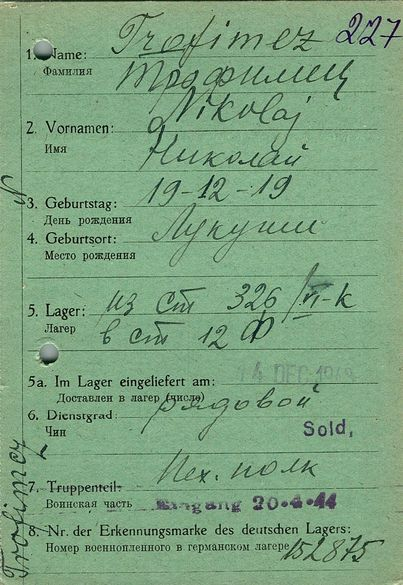 Trofimez 227
1. Name:
Фамилия Трофимец
Nikolaj
2. Vornamen:
Имя Николай
3. Geburtstag: 19-12-19
День рождения
4. Geburtsort: Лукуши
Место рождения
5. Lager: из ст 326/VI-К
Лагерь в ст 12 Ф
5a. Im Lager eingeliefert am: 14 DEC
Доставлен в лагерь (число)
6. Dienstgrad: рядовой
Чин Sold.
7. Truppenteil: Пех. полк
Воинская часть Eingang 20-4-44
8. Nr. der Erkennungsmarke des deutschen Lagers:
Номер военнопленного в германском лагере 152875
Trofimez
N